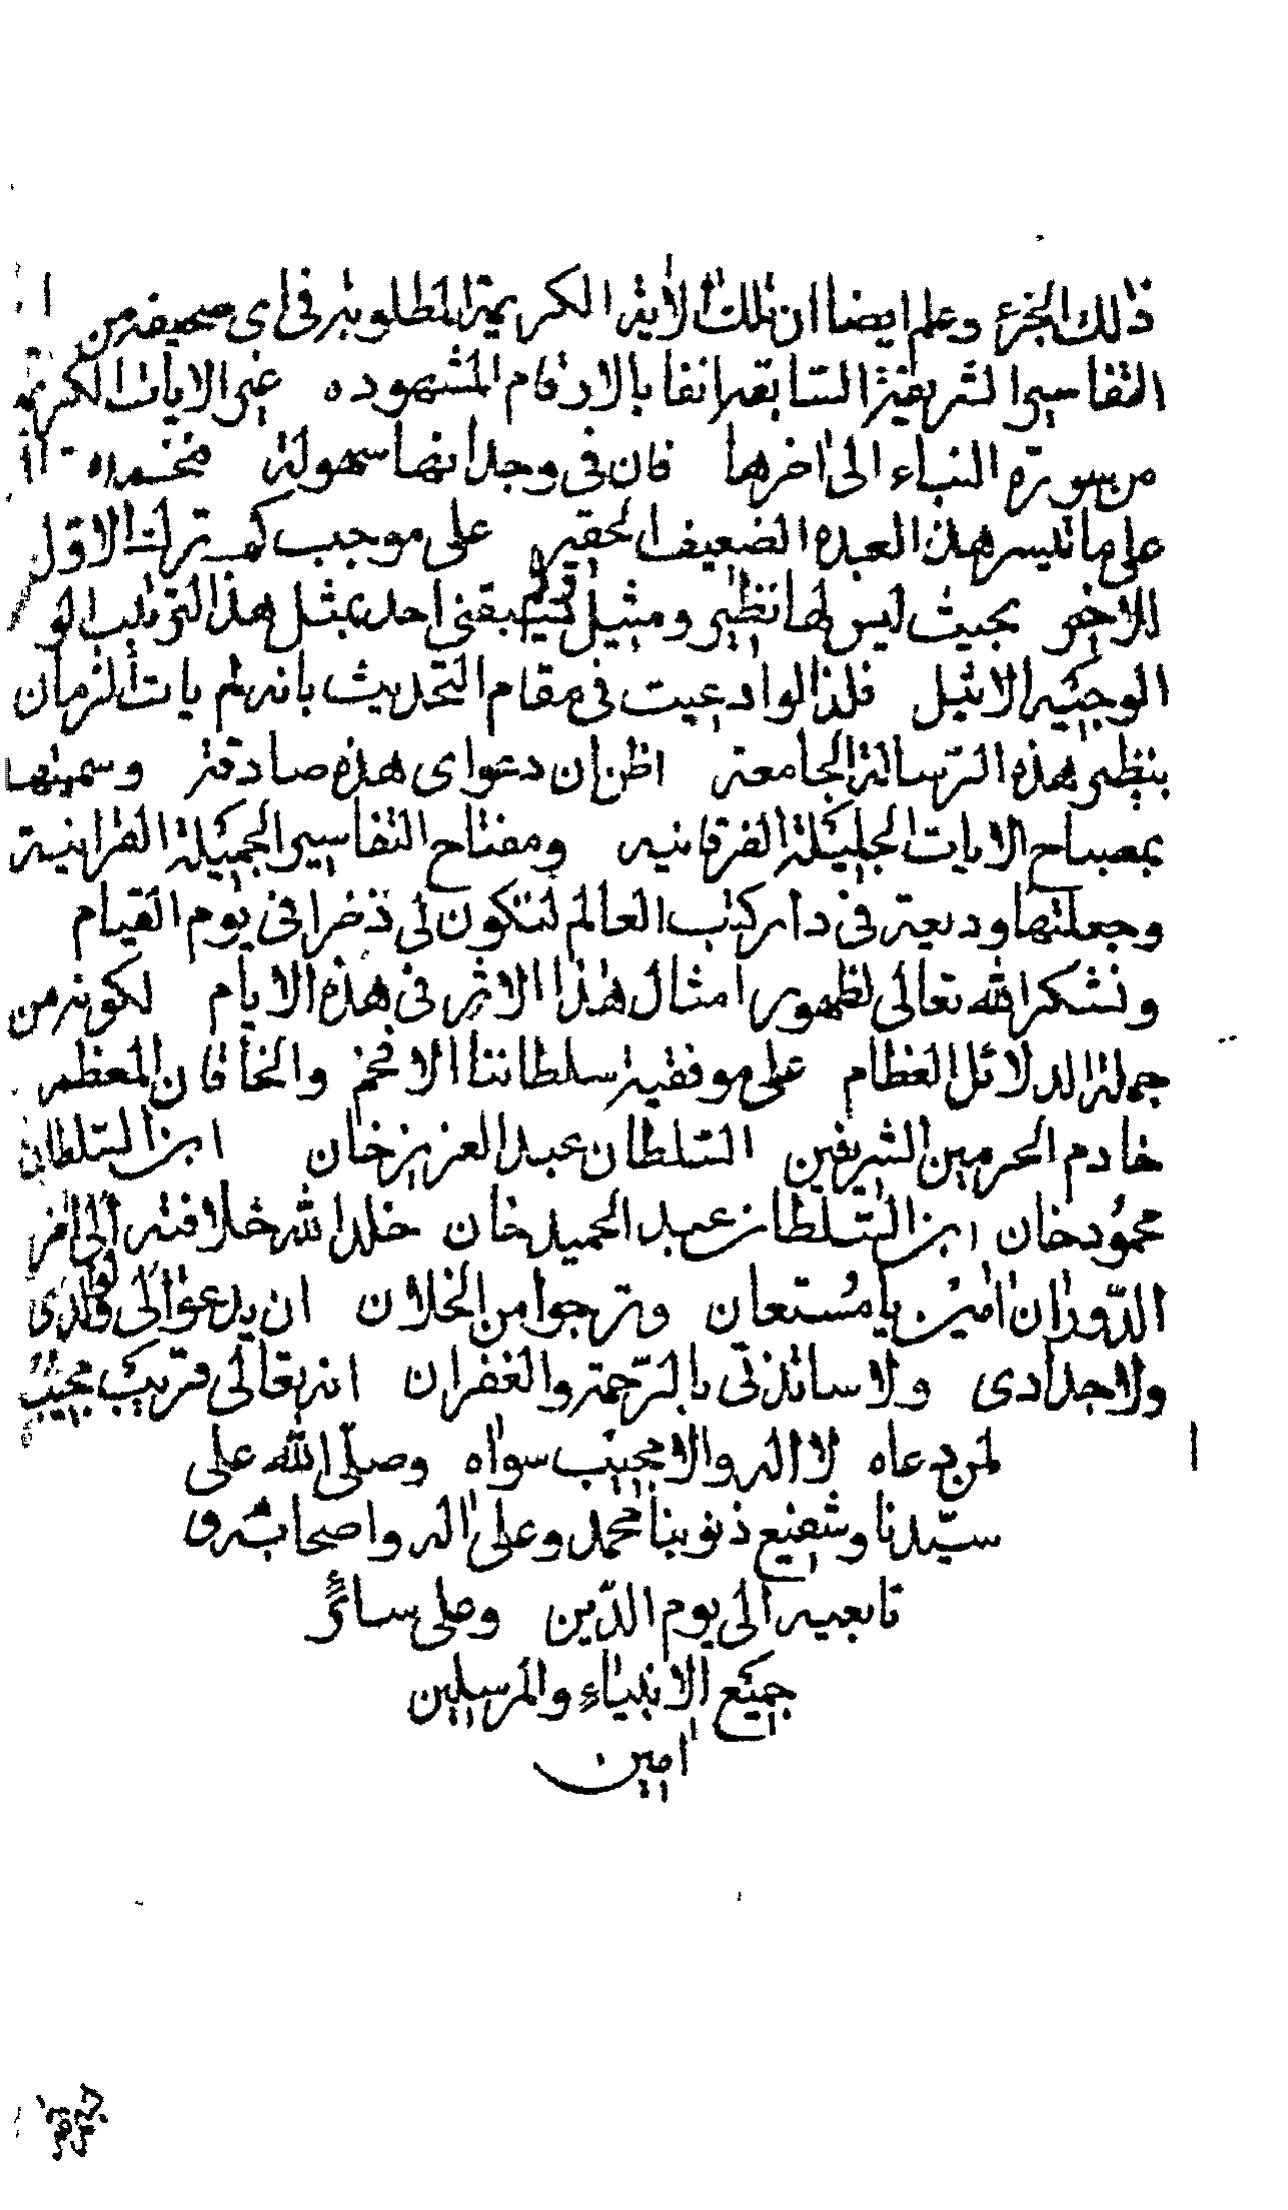 ذلك الجزء وعلم ايضا ان تلك الاية الكريمة المطلوبة في اى صحيفة من
التفاسير الشريفة السابقة انفا بالارقام المشهوده غير الايات الكريمة
من سورة النباء الى اخرها فان في وجدانها سهولة فنحمده
على ما تيسر هذ العبده الضعيف الحقير على موجب كم ترك الاول
للاخر بحيث ليس لها نظير ومثيل ولم يسبقني احد بمثل هذ الترتيب الو
الوجيه الاثيل فلذا لو ادعيت في مقام التحديث بانه لم يات الزمان
بنظير هذه الرسالة الجامعة اظن ان دعواى هذه صادقة وسميتها
بمصباح الايات الجليلة الفرقانيه ومفتاح التفاسير الجميلة القرانية
وجعلتها وديعة في دار كتاب العالم لتكون لى ذخرا في يوم القيام
ونشكر الله تعالى لظهور امثال هذا الاثر في هذه الايام لكونه من
جملة الدلائل العظام على موفقية سلطاننا الافخم والخاقان المعظم
خادم الحرمين الشريفين السلطان عبد العزيز خان ابن السلطان
محمود خان ابن السلطان عبد الحميد خان خلد الله خلافته الى اخر
الدوران امين يا مستعان وترجوا من الخلان ان يدعوا لى ولوالدى
ولاجدادى ولاساتذتى بالرحمة والغفران انه تعالى قريب مجيب
لمن دعاه لا اله والا مجيب سواه وصلى الله على
سيدنا وشفيع ذنوبنا محمد وعلى اله واصحابه و
تابعيه الى يوم الدين وعلى سائر
جميع الانبياء والمرسلين
امين